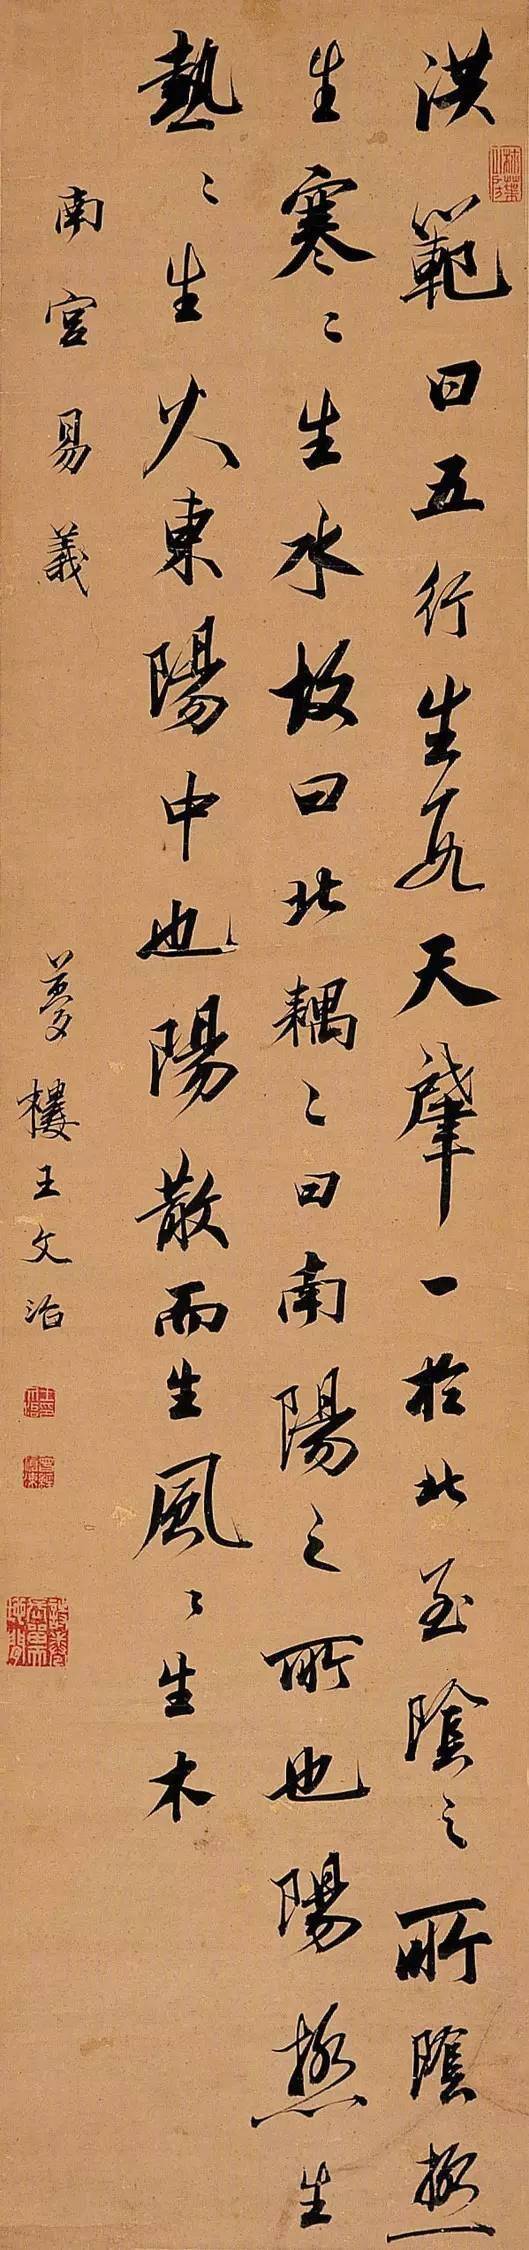 洪範曰五行生右天肇一於北至陰之所陰極
生寒〻生水故曰北耦〻曰南陽之所也陽極生
熱〻生火東陽中也陽散而生風〻生木
南宮易義
夢樓王文治